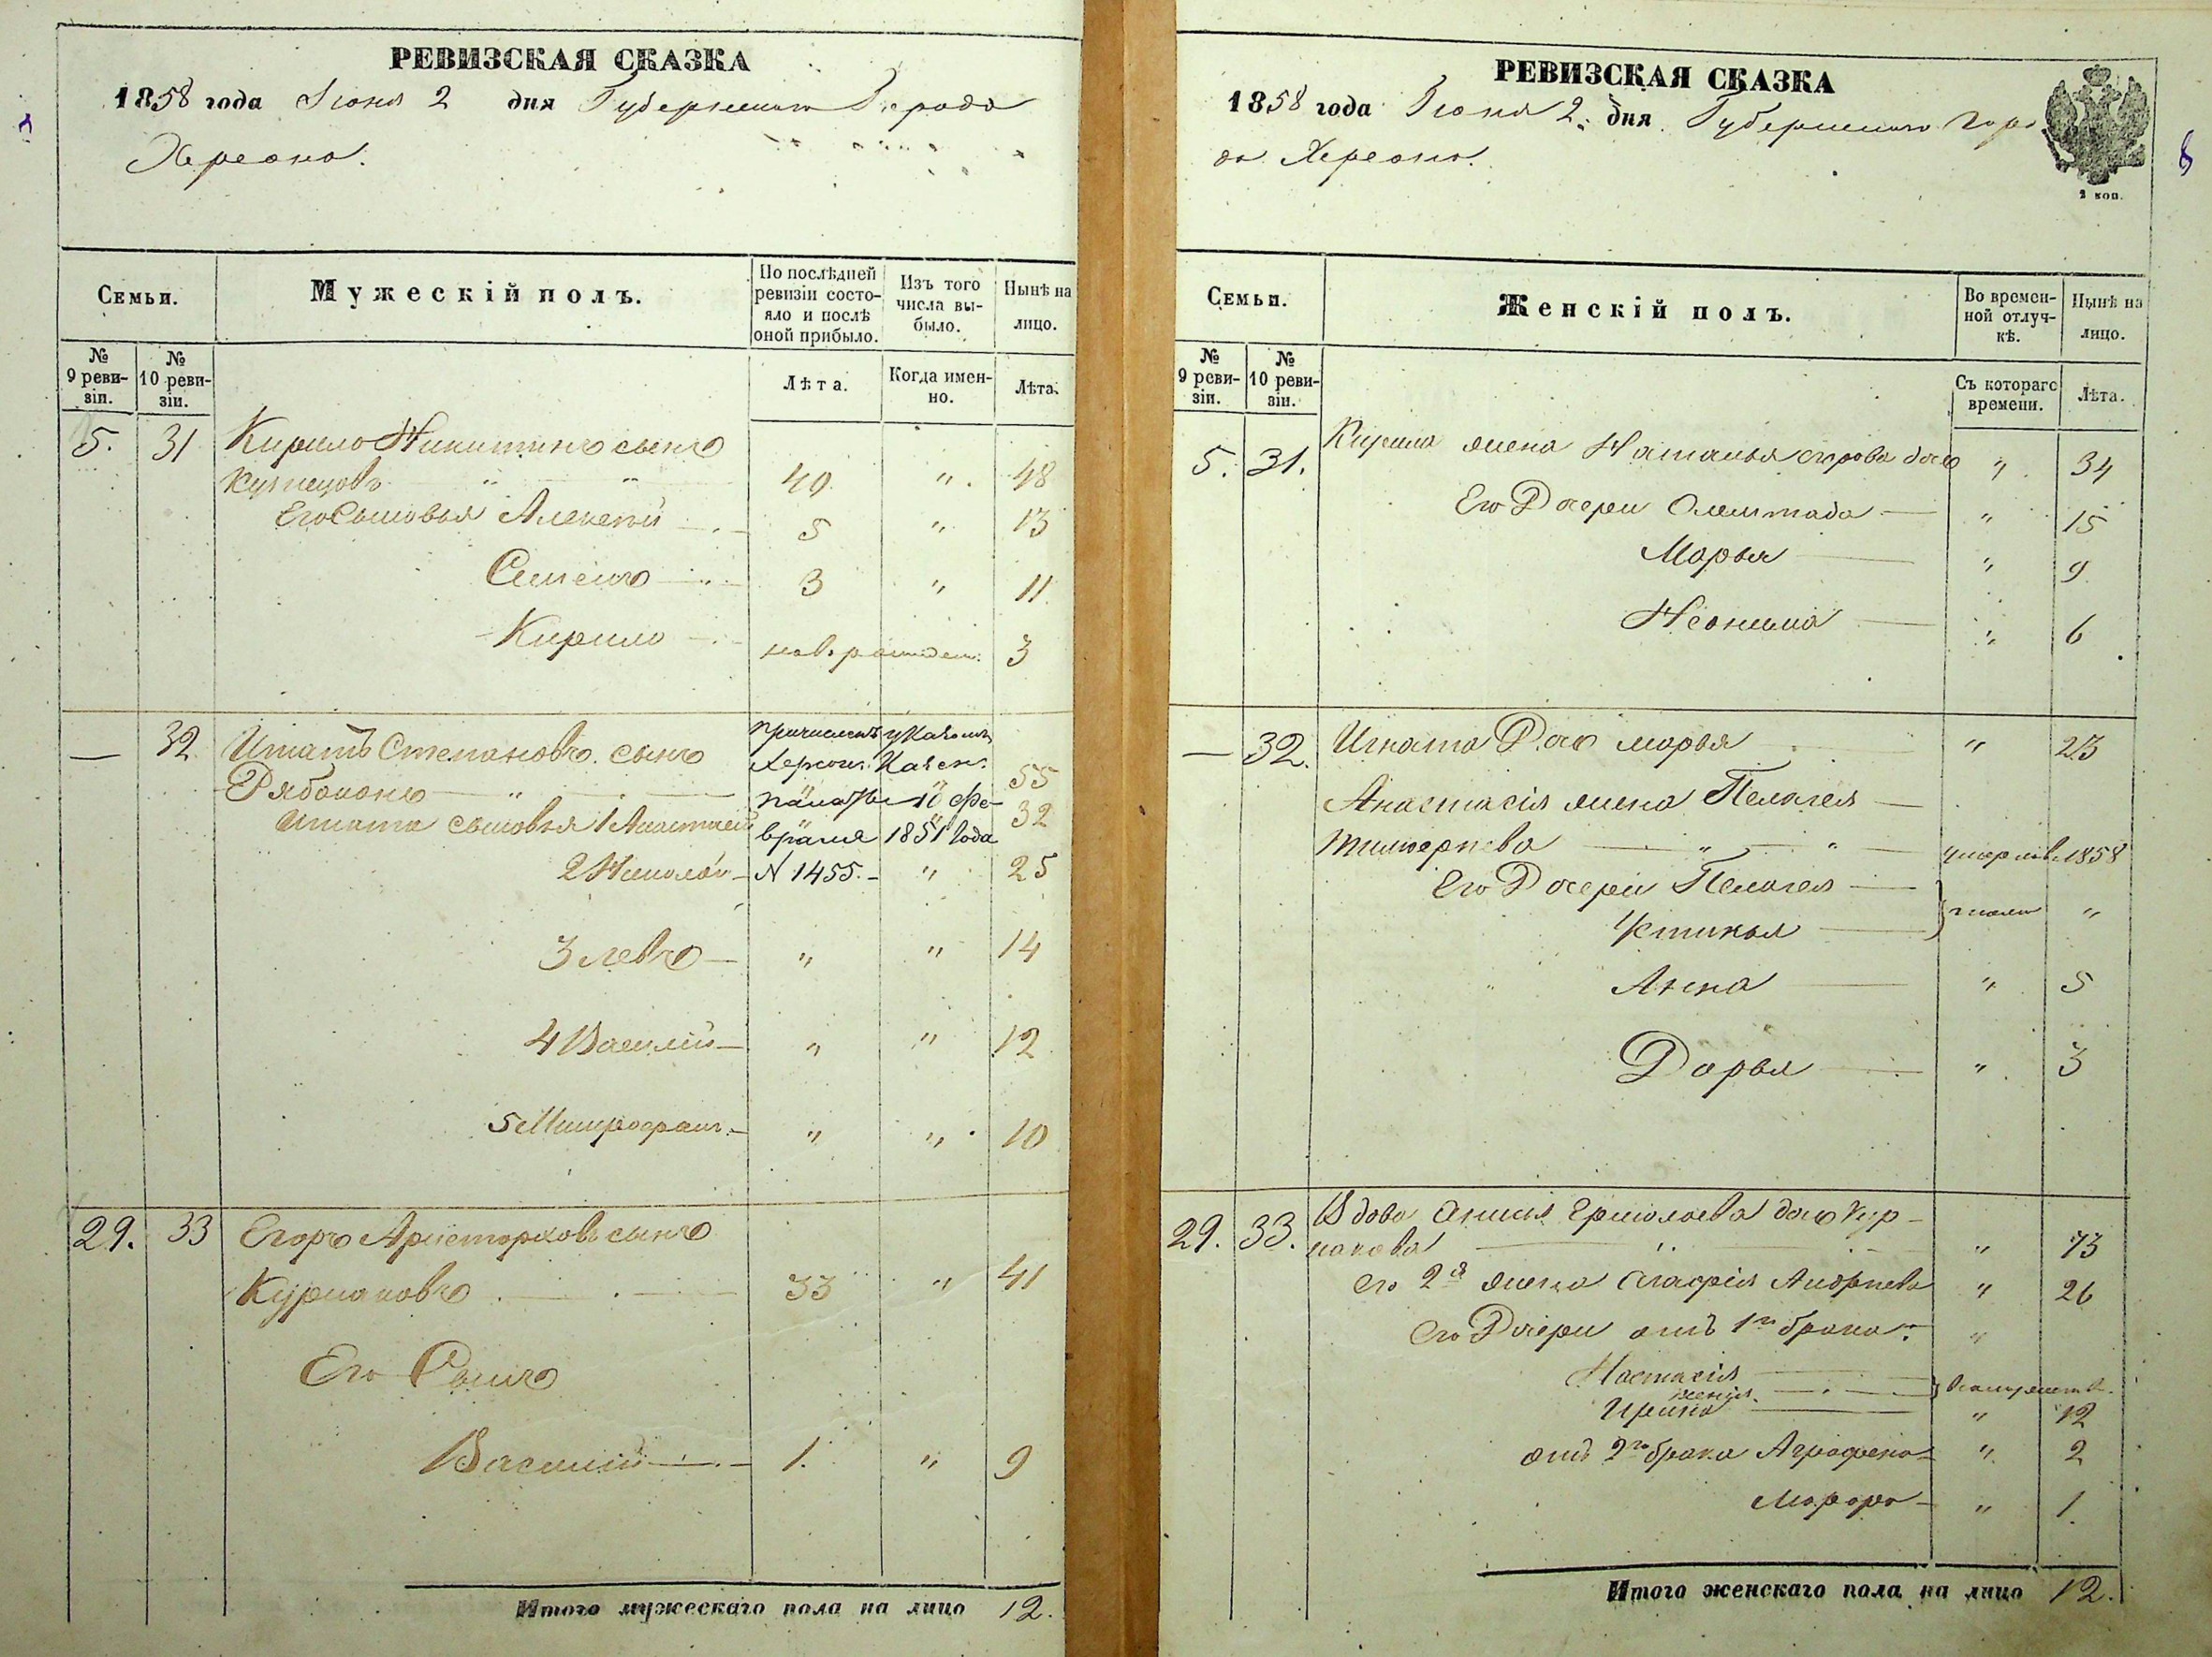 РЕВИЗСКАЯ СКАЗКА
1858 года Іюня 2 дня Губернскаго Города
Херсона.
Семьи.
Мужескій полъ.
По послѣдней ревизіи состояло и послѣ оной прибыло.
Изъ того числа выбыло.
Нынѣ на лицо.
№ 9 ревизіи.
№ 10 ревизіи.
Лѣта.
Когда именно.
Лѣта.
5. 31 Кирило Никитинъ сынъ
Кузнецовъ " " 40 " 48
Его Сыновья Алексѣй 5 " 13
Семенъ 3 " 11
Кирило новорожден: 3
— 32 Игнатъ Степановъ сынъ
Рябоконь " 55
Игната сыновья 1 32
причисленъ указомъ
Херсон: Казен:
палаты 10 фе-
враля 1851 года
N 1455.-
2 Николай " 25
3 Левъ " " 14
4 Василій " " 12
5 Митрофанъ " " 10
29. 33 Егоръ Аристарховъ сынъ
Курнаковъ 33 " 41
Его Сынъ
Василій 1. " 9
Итого мужескаго пола на лицо 12.
РЕВИЗСКАЯ СКАЗКА
1858 года Іюня 2 дня Губернскаго Горо-
да Херсона.
2 коп.
Семьи.
Женскій полъ.
Во временной отлучкѣ.
Нынѣ на лицо.
№ 9 ревизіи.
№ 10 ревизіи.
Съ котораго времени.
Лѣта.
5. 31. Кирила жена Наталья дочь " 34
Его Дочери " 15
Марья " 9
Неонила " 6
— 32. Игната Дочь Марья " 23
жена Пелагея
Тимофѣева " " 1858
Его Дочери Пелагея
Устинья "
Анна " 5
Дарья " 3
29. 33. Вдова Ермолаева дочь Кур-
накова " 73
его 2я жена Андрѣева " 26
Его Дочери отъ 1го брака: "
Настасія
Ксенія
Ирина " 12
отъ 2го брака Аграфена " 2
" 1.
Итого женскаго пола на лицо 12.